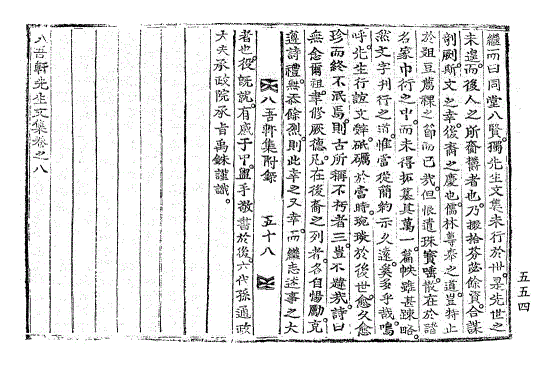 繼而曰同堂八賢獨先生文集未行於世是先世之
未遑而後人之所齎欝者也乃掇拾芬苾餘資合謀
剞劂斯文之幸後裔之慶也儒林尊奉之道豈特止
於俎豆薦祼之節而已哉但恨遺珠寳唾散在於諸
名家巾衍之中而未得拓其萬一篇帙雖甚踈略
然文字刊行之道惟當從簡約示久遠奚多乎哉嗚
呼先生行誼文辭砥礪於當時琬琰於後世愈久愈
珍而終不泯焉則古所稱不朽者三豈不韙哉詩曰
無念爾祖聿修厥德凡在後裔之列者各自惕勵克
遵詩禮無忝餘烈則此幸之又幸而繼志述事之大
八吾軒集附錄 五十八
者也役旣訖有感于中盥手敬書於後六代孫通政
大夫承政院承旨禹銖謹識
八吾軒先生文集卷之八
五五四